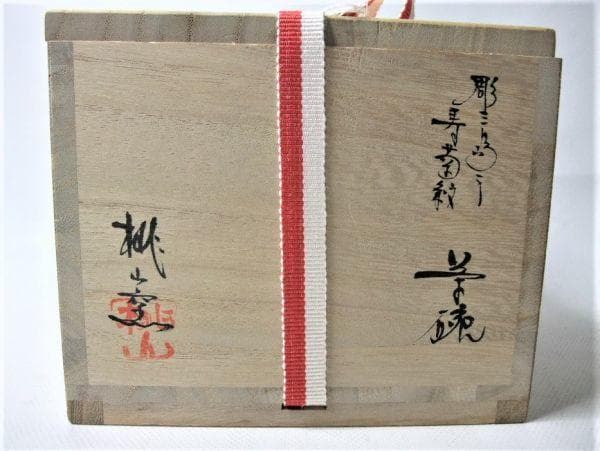 彫三島
寿菊紋
茶碗
桃山窯
桃山